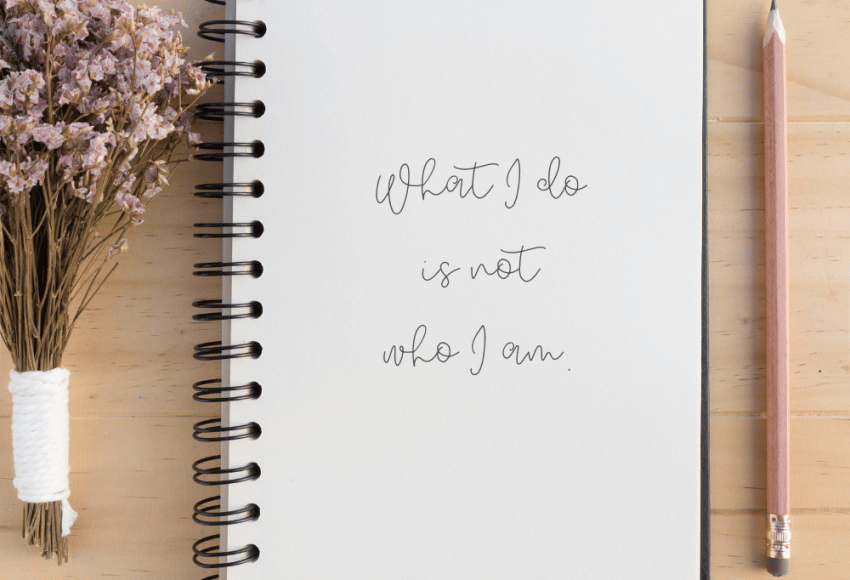 What I do
is not
who I am.